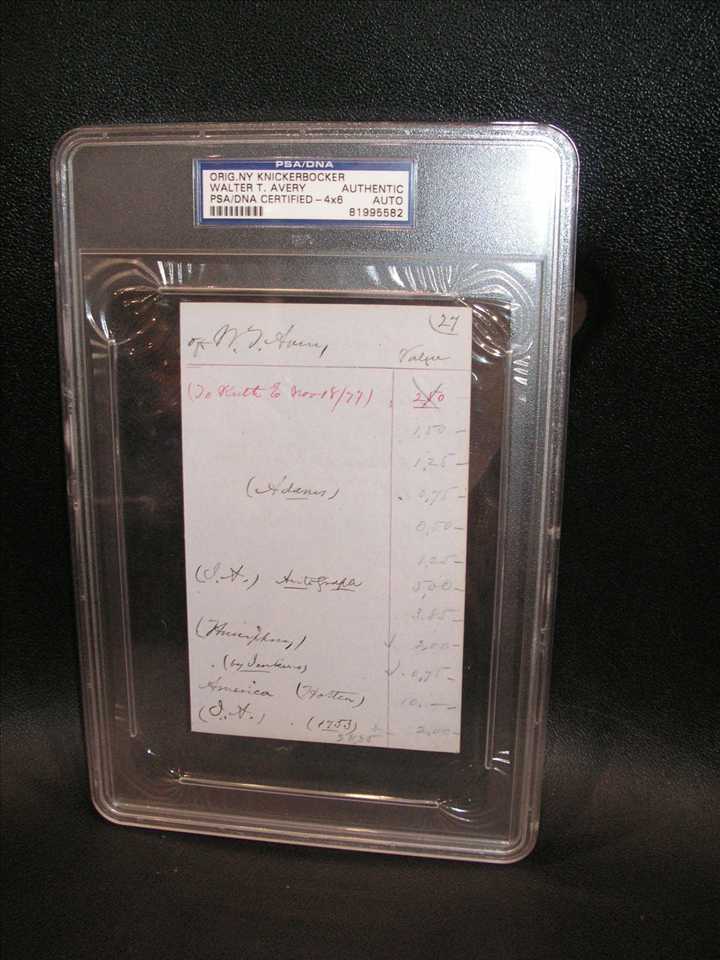 PSA/DNA
ORIG.NY KNICKERBOCKER
WALTER T. AVERY AUTHENTIC
PSA/DNA CERTIFIED - 4x6 AUTO
81995582
27
of W. T. Avery Value
(To Ruth E Nov 18/77) 2,50
1,50
1,25
(Adams) 0,75
0,50
1,25
(I. A.) Autograph 5,00
3,85
(Humphrey) 2,00
(by Jenkins) 0,75
America (Hotten) 10,
(I. A.) (1753) 2,00